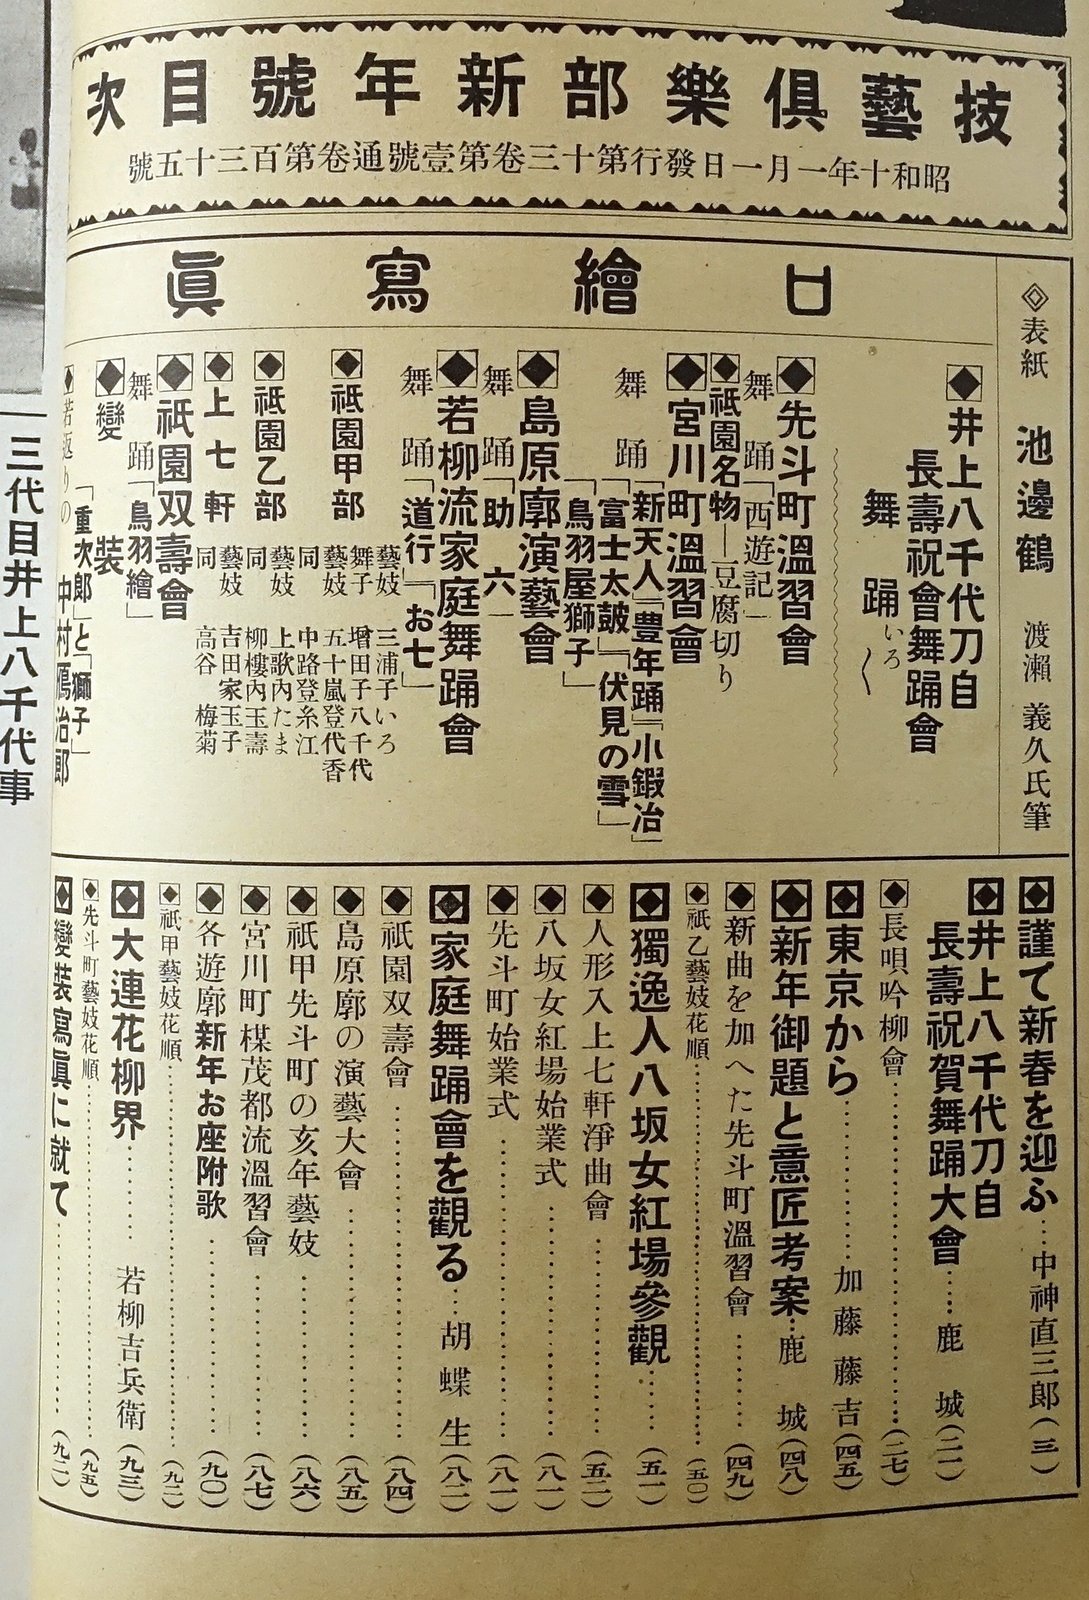 技藝倶樂部新年號目次
昭和十年一月一日發行第十三卷第壹號通卷第百三十五號
口繪寫眞
◇表紙 池邊鶴 渡瀨義久氏筆
◆井上八千代刀自
長壽祝會舞踊會
舞踊いろ〱
◆先斗町溫習會
舞踊「西遊記」
◆祇園名物―豆腐切り
◆宮川町溫習會
舞踊「新天人」「豊年踊」「小鍜冶」
「富士太皷」「伏見の雪」
「鳥羽屋獅子」
◆島原廓演藝會
舞踊「助六」
◆若柳流家庭舞踊會
舞踊「道行」「お七」
◆祇園甲部
藝妓 三浦子いろ
舞子 增田子八千代
藝妓 五十嵐登代香
同 中路登糸江
◆祇園乙部
藝妓 上歌內たま
同 柳樓內玉壽
◆上七軒
藝妓 吉田家玉子
同 高谷梅菊
◆祇園双壽會
舞踊「鳥羽繪」
◆變裝
「重次郎」と「獅子」
◆若返りの 中村鴈治郎
◆謹て新春を迎ふ…中神直三郎(三)
◆井上八千代刀自
長壽祝賀舞踊大會…鹿城(二一)
◆長唄吟柳會…(二七)
◆東京から…加藤藤吉(四五)
◆新年御題と意匠考案…鹿城(四八)
◆新曲を加へた先斗町溫習會…(四九)
◆祇乙藝妓花順…(五〇)
◆獨逸人八坂女紅場參觀…(五一)
◆人形入上七軒淨曲會…(五二)
◆八坂女紅場始業式…(八一)
◆先斗町始業式…(八一)
◆家庭舞踊會を觀る…胡蝶生(八二)
◆祇園双壽會…(八四)
◆島原廓の演藝大會…(八五)
◆祇甲先斗町の亥年藝妓…(八六)
◆宮川町楳茂都流溫習會…(八七)
◆各遊廓新年お座附歌…(九〇)
◆祇甲藝妓花順…(九二)
◆大連花柳界…若柳吉兵衛(九三)
◆先斗町藝妓花順…(九五)
◆變裝寫眞に就て…(九二)
三代目井上八千代事